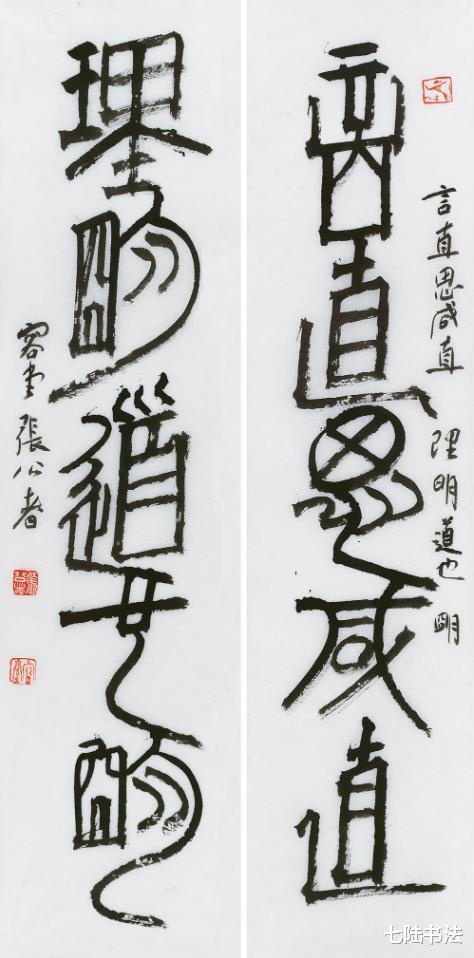 言直思咸直
言直思咸直 理明道也明
理明道也明
容堂 張公者
七陆书法